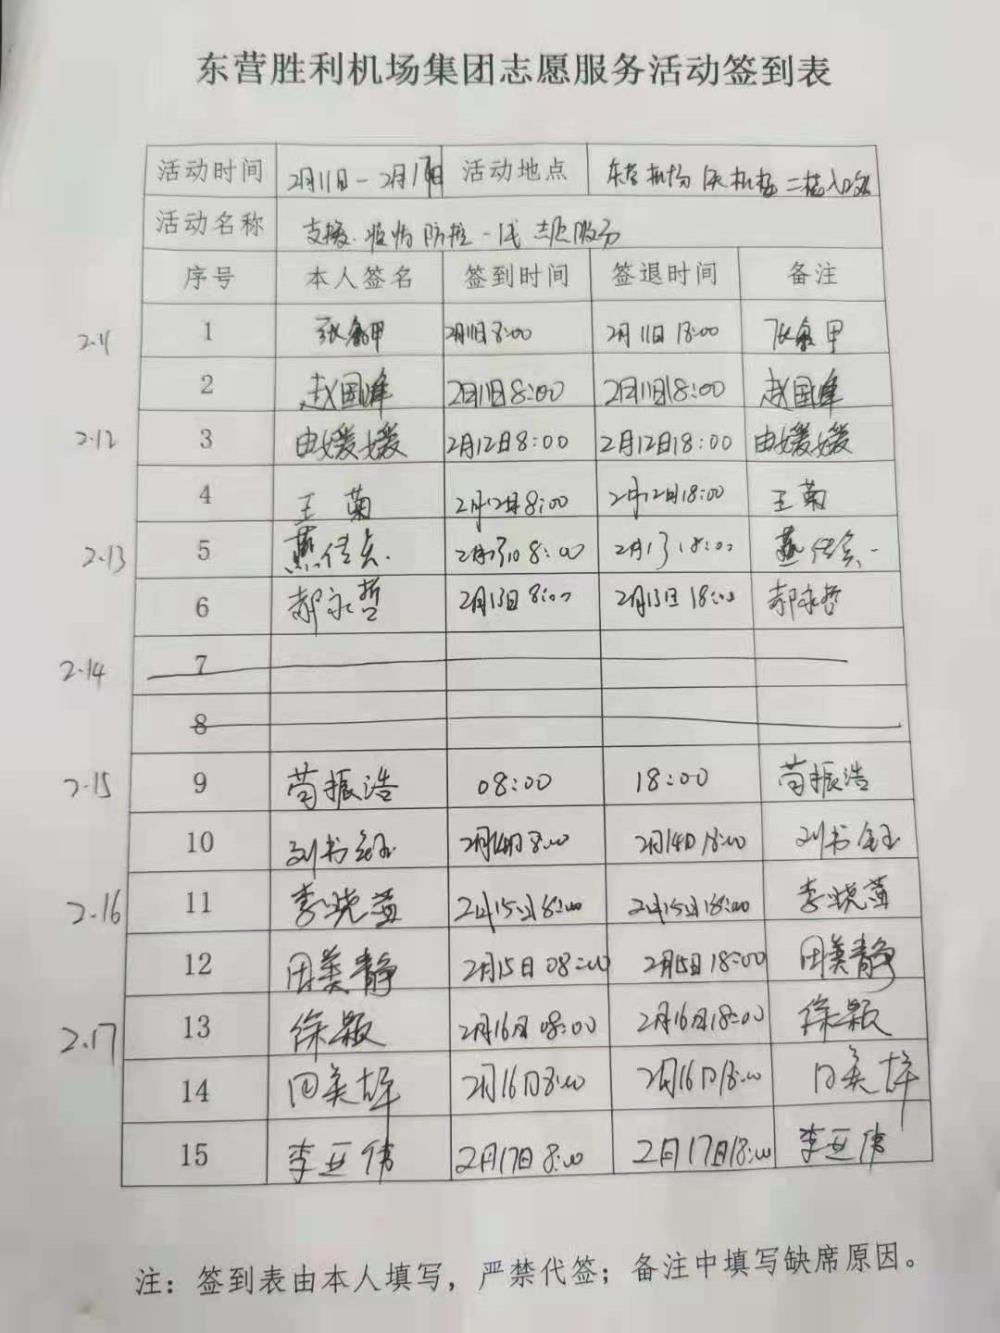 东营胜利机场集团志愿服务活动签到表
活动时间 2月11日-2月17日 活动地点 东营机场 候机楼 二楼入口处
活动名称 支援 疫情 防控 一线 志愿服务
序号 本人签名 签到时间 签退时间 备注
2.11 1 2月11日8:00 2月11日 18:00
2 赵国峰 2月11日8:00 2月11日18:00 赵国峰
2.12 3 由媛媛 2月12日8:00 2月12日18:00 由媛媛
4 王菊 2月12日8:00 2月12日18:00 王菊
2.13 5 2月13日 8:00 2月13 18:00
6 郝永哲 2月13日 8:00 2月13日 18:00 郝永哲
2.14 7
8
2.15 9 苟振浩 08:00 18:00 苟振浩
10 刘书钰 2月14日 8:00 2月14日 18:00 刘书钰
2.16 11 李晓萱 2月15日8:00 2月15日18:00 李晓萱
12 田美静 2月15日 08:00 2月15日 18:00 田美静
2.17 13 徐颖 2月16日 08:00 2月16日18:00 徐颖
14 2月16日8:00 2月16日18:00
15 李亚伟 2月17日 8:00 2月17日18:00 李亚伟
注：签到表由本人填写，严禁代签；备注中填写缺席原因。